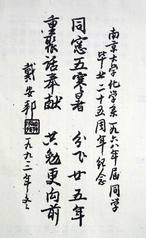 南京大学化学系一九六八年届同学
毕业二十五周年纪念
同窗五寒暑 分飞廿五年
重聚话奉献 共勉更向前
戴安邦 一九九三年冬